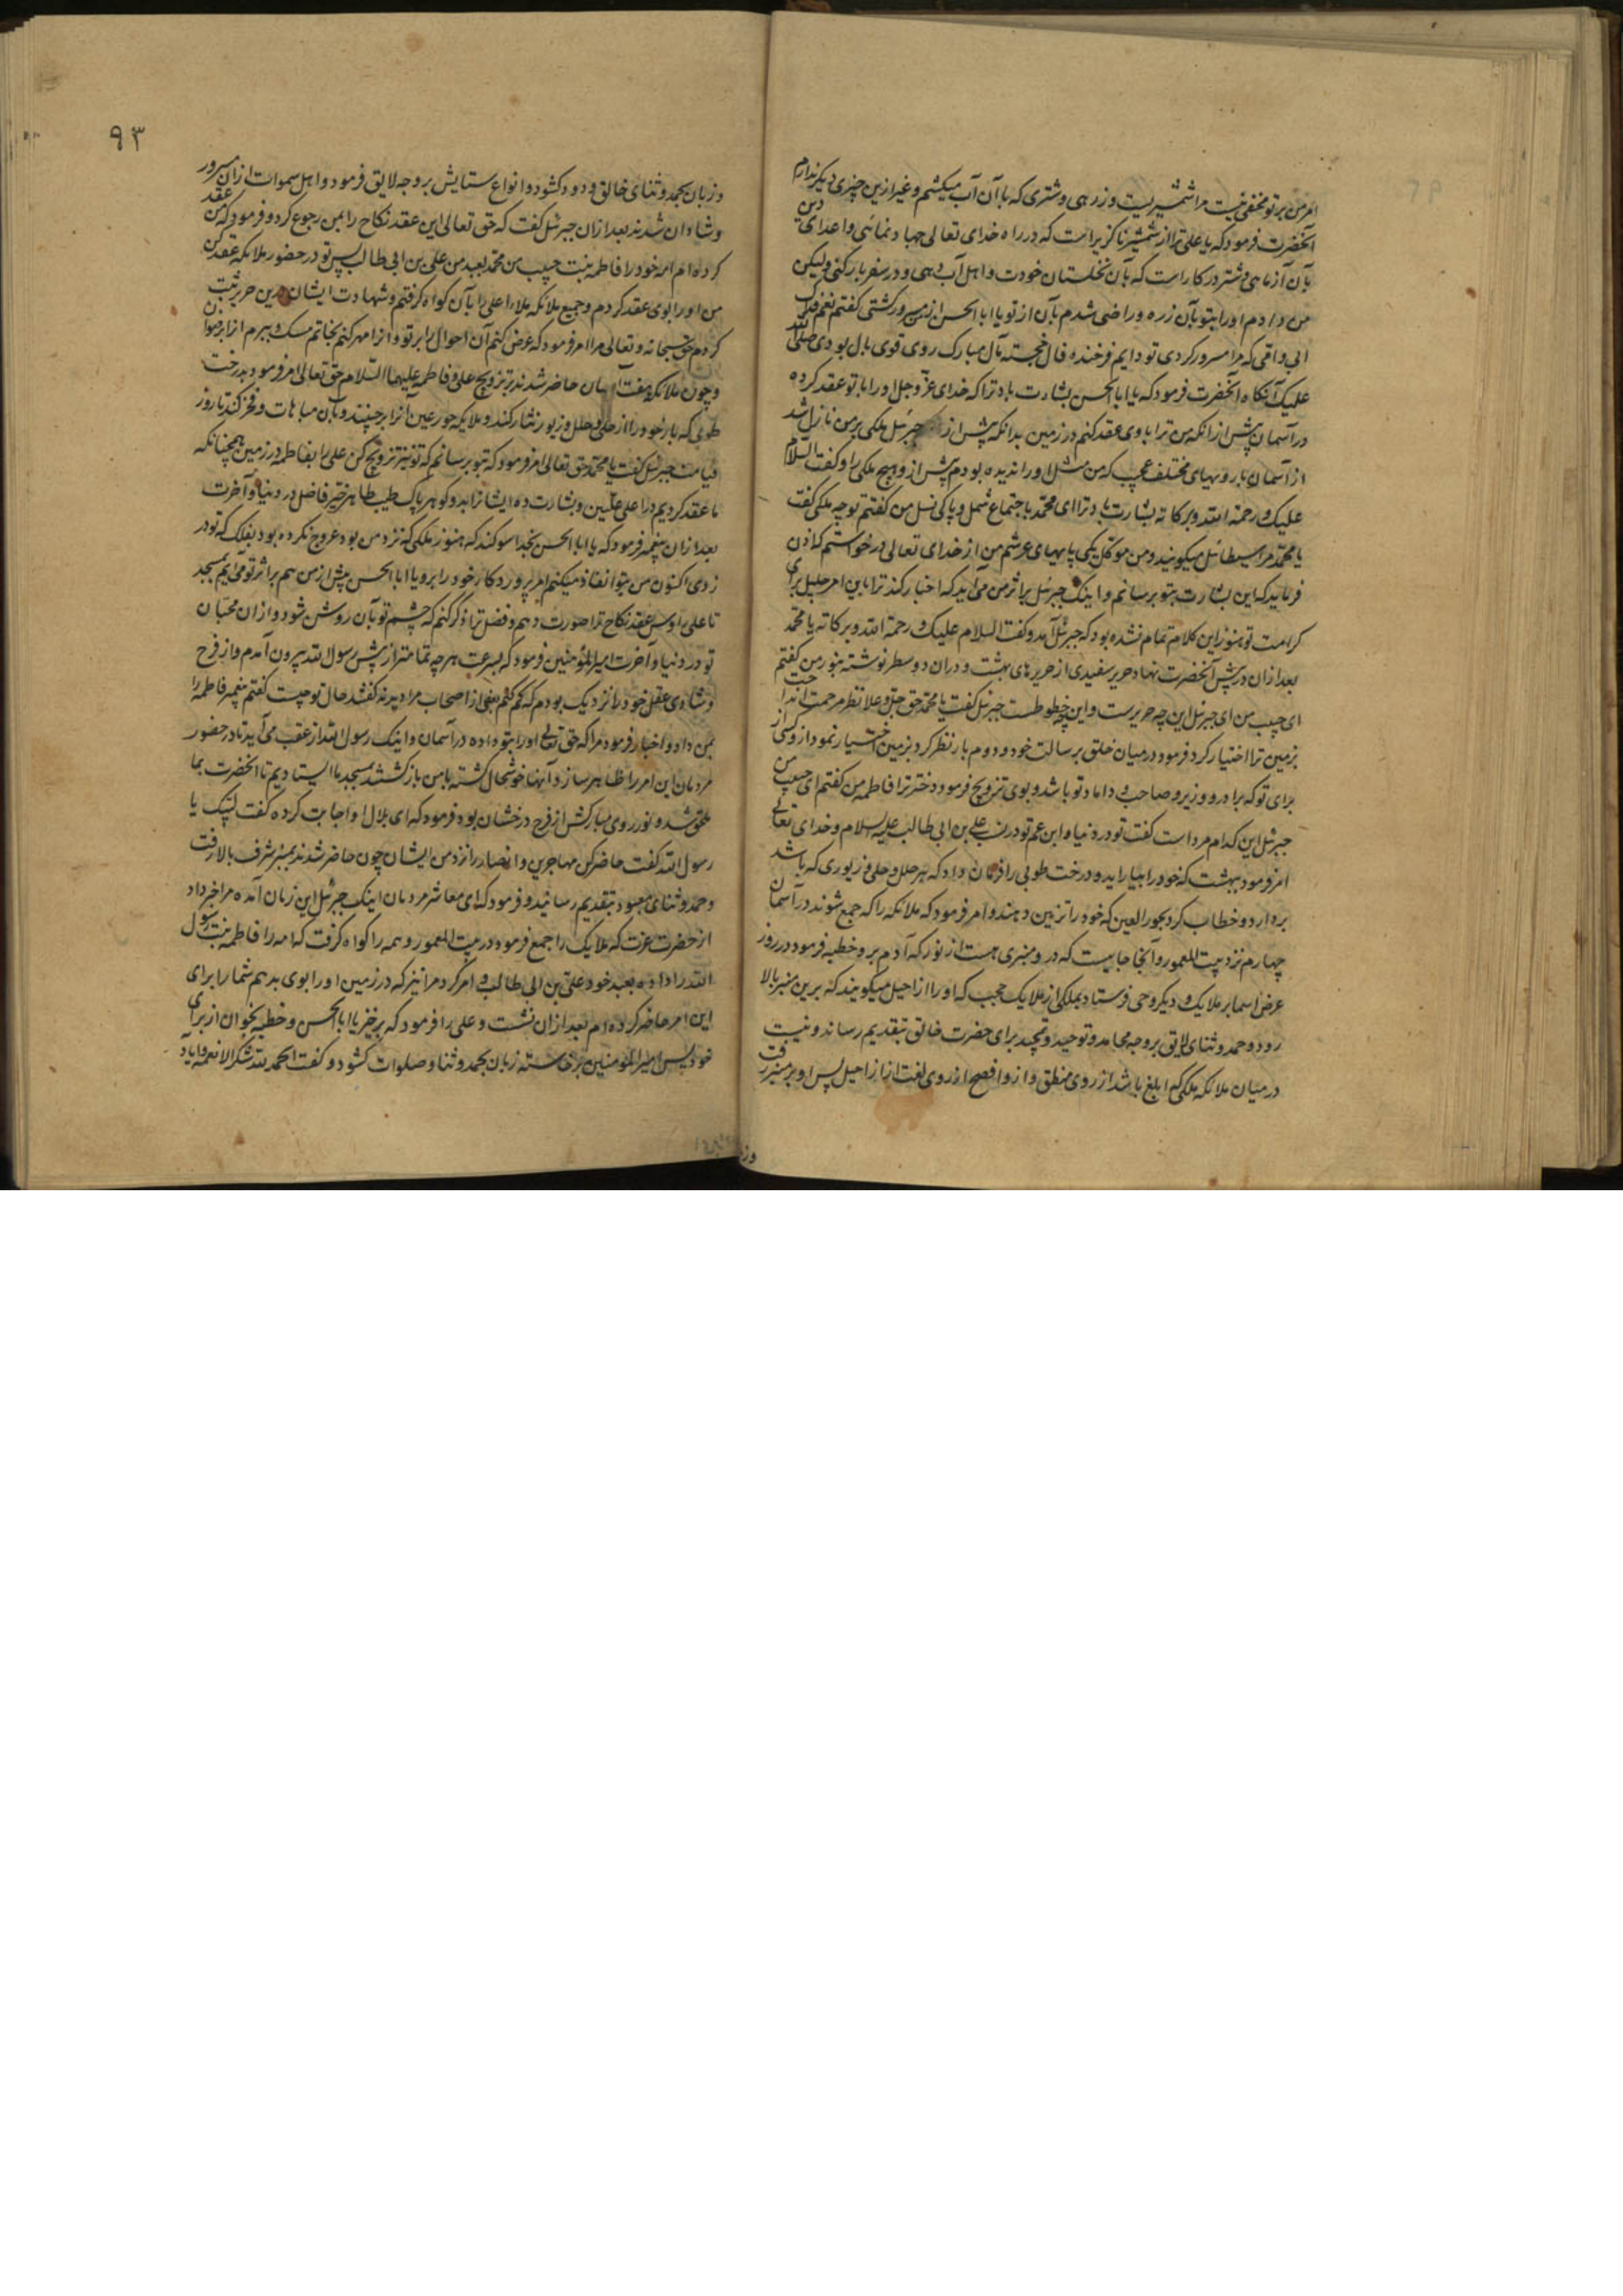 امر من بر تو مخفی نیست مرا شمشیریست و زرهی و شتری که با آن آب میکشم و غیر ازین چیزی دیگر ندارم
آنحضرت فرمود که یا علی ترا از شمشیر ناگزیر است که در راه خدای تعالی جهاد نمائی و اعدای دین
بآن آزماهی و شتر در کار است که بآن نخلستان خودت و اهل آب دهی و در سفر بار کنی و لیکن
من دادم او را بتو بآن زره و راضی شدم بآن از تو یا ابا الحسن از من مسرور گشتی گفتم نعم فداک
ابی و امی که مرا مسرور کردی تو دایم فرخنده فال خجسته مآل مبارک روی قوی بال بودی صلی الله
علیک آنگاه آنحضرت فرمود که یا ابا الحسن بشارت باد ترا که خدای عز و جل او را با تو عقد کرده
در آسمان پیش از انکه من ترا با وی عقد کنم در زمین بدانکه پیش از جبرئیل ملکی بر من نازل شد
از آسمان با رویهای مختلف عجیب که من مثل او را ندیده بودم پیش از و هیچ ملکی را و گفت السلام
علیک و رحمة الله و برکاته بشارت باد ترا ای محمد باجتماع شمل و پاکی نسل من گفتم تو چه ملکی گفت
یا محمد مرا سیطائل میگویند و من موکل یکی پایهای عرشم من از خدای تعالی درخواستم که اذن
فرماید که این بشارت بتو برسانم و اینک جبرئل بر اثر من می آید که اخبار کند ترا باین امر جلیل برای
کرامت تو هنوز این کلام تمام نشده بود که جبرئل آمد و گفت السلام علیک و رحمة الله و برکاته یا محمد
بعد از آن در پیش آنحضرت نهاد حریر سفیدی از حریرهای بهشت و در ان دو سطر نوشته بنور من گفتم
ای حبیب من ای جبرئل این چه حریرست و این چه خطوطست جبرئل گفت یا محمد حق جل و علا نظر مرحمت انداخت
بزمین ترا اختیار کرد فرمود در میان خلق برسالت خود و دوم بار نظر کرد بزمین اختیار نمود از وکسی از
برای تو که برادر و وزیر و صاحب و داماد تو باشد و بوی تزویج فرمود دختر ترا فاطمه من گفتم ای حبیب من
جبرئل این کدام مرد است گفت تو در دنیا و ابن عم تو در نسب علی بن ابی طالب علیه السلام و خدای تعالی
امر فرمود ببهشت که خود را بیاراید و درخت طوبی را فرمان داد که هر حلل و حلی و زیوری که باشد
بردارد و خطاب کرد بحور العین که خود را تزیین دهند و امر فرمود که ملائکه را که جمع شوند در آسمان
چهارم نزد بیت المعمور و آنجا جاییست که در و منبری هست از نور که آدم برو خطبه فرمود در روز
عرض اسما بر ملایک و دیگر وحی فرستاد بملکی از ملایک حجب که او را از احیل میگویند که برین منبر بالا
رود و حمد و ثنای لایق بر وجه محامد و توحید و تمجید برای حضرت خالق بتقدیم رساند و نیست
در میان ملائکه ملکی که ابلغ باشد از روی منطق و از و افصح از روی لغت از از احیل پس او بر منبر رفت
وز
۹۳
و زبان بحمد و ثنای خالق ودود کشود و انواع ستایش بر وجه لایق فرمود و اهل سموات از ان مسرور
و شادان شدند بعد از ان جبرئل گفت که حق تعالی این عقد نکاح را بمن رجوع کرد و فرمود که من عقد
کرده ام امه خود را فاطمه بنت حبیب من محمد بعبد من علی بن ابی طالب پس تو در حضور ملائکه عقد کن
من او را بوی عقد کردم و جمیع ملائکه ملاء اعلی را بآن گواه گرفتم و شهادت ایشان درین حریر ثبت
کردم حق سبحانه و تعالی مرا امر فرمود که عرض کنم آن احوال را بر تو و انرا مهر کنم بخاتم مسک و بسپرم انرا برضوان
و چون ملائکه هفت آسمان حاضر شدند بر تزویج علی و فاطمه علیهما السلام حق تعالی امر فرمود بدرخت
طوبی که بار خود را از حلی و حلل و زیور نثار کند و ملایکه حور عین آنرا برچینند و بآن مباهات و فخر کنند تا روز
قیامت جبرئل گفت یا محمد حق تعالی امر فرمود که بتو برسانم که تو نیز تزویج کن علی را بفاطمه در زمین همچنانکه
ما عقد کردیم در اعلی علیین و بشارت ده ایشانرا بدو گوهر پاک طیب طاهر خیر فاضل در دنیا و آخرت
بعد از ان پیغمبر فرمود که یا ابا الحسن بخدا سوگند که هنوز ملکی که نزد من بود عروج نکرده بود بفلک که تو در
زدی اکنون من بتو انفاذ میکنم امر پروردگار خود را برو یا ابا الحسن پیش از من هم بر اثر تو می آیم بمسجد
تا علی رؤس عقد نکاح ترا صورت دهم و فضل ترا ذکر کنم که چشم تو بآن روشن شود و از ان محبان
تو در دنیا و آخرت امیر المؤمنین فرمود که بسرعت هر چه تمامتر از پیش رسول الله بیرون آمدم و از فرح
و شادی عقل خود را نزدیک بودم که گم کنم بعضی از اصحاب مرا دیدند گفتند حال تو چیست گفتم پیغمبر فاطمه را
بمن داد و اخبار فرمود مرا که حق تعالی او را بتو داده در آسمان و اینک رسول الله از عقب می آید تا در حضور
مردمان این امر را ظاهر سازد آنها خوشحال گشته با من باز گشتند بمسجد ما ایستادیم تا انحضرت بما
ملحق شد و نور روی مبارکش از فرح درخشان بود فرمود که ای بلال او اجابت کرده گفت لبیک یا
رسول الله گفت حاضر کن مهاجرین و انصار را نزد من ایشان چون حاضر شدند بمنبر شرف بالا رفت
و حمد و ثنای معبود بتقدیم رسانید و فرمود که ای معاشر مردمان اینک جبرئل این زمان آمده مرا خبر داد
از حضرت عزت که ملایک را جمع فرمود در بیت المعمور و همه را گواه گرفت که امه را فاطمه بنت رسول
الله را داده بعبد خود علی بن ابی طالب و امر کرد مرا نیز که در زمین او را بوی بدهم شما را برای
این امر حاضر کرده ام بعد ازان نشست و علی را فرمود که برخیز یا ابا الحسن و خطبه بخوان از برای
خود پس امیر المومنین برخاسته زبان بحمد و ثنا و صلوات کشود و گفت الحمد لله شکرا لانعمه و ایاد